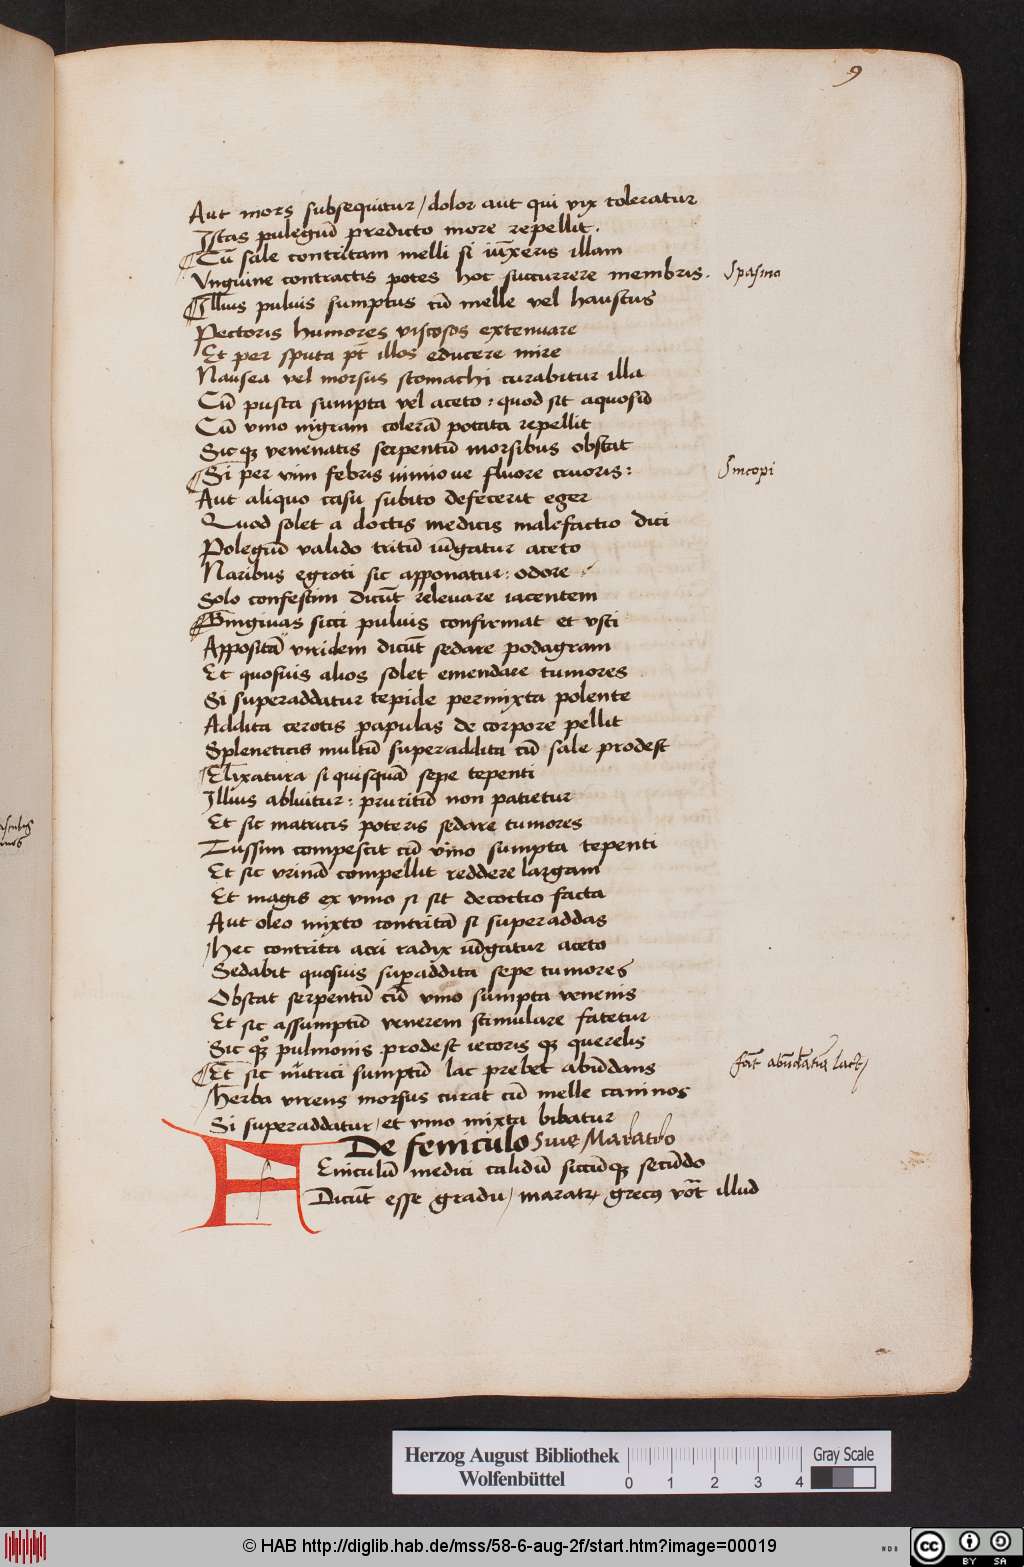 9
Aut mors subsequitur / dolor aut qui vix toleratur
Istas pulegiū predicto more repellit.
Cū sale contritam melli si iūxeris illam
Vnguine contractis potes hoc succurrere membris. Spasmo
Illius puluis sumptus cū melle vel haustus
Pectoris humores viscosos extenuare
Et per sputa pt̄ illos educere mire
Nausea vel morsus stomachi curabitur illa
Cū pusca sumpta vel aceto : quod sit aquosū
Cū vino nigram colerā potata repellit
Sicqꝫ venenatis serpentū morsibus obstat
Si per vim febris nimioue fluore cruoris : Sincopi
Aut aliquo casu subito defecerit eger
Quod solet a doctis medicis malefactio dici
Polegiū valido tritū iūgatur aceto
Naribus egroti sic apponatur : odore
Solo confestim dicūt releuare iacentem
Gingiuas sicci puluis confirmat et vsti
Appositā viridem dicūt sedare podagram
Et quosuis alios solet emendare tumores
Si superaddatur tepide permixta polente
Addita cerotis papulas de corpore pellit
Spleneticis multū superaddita cū sale prodest
Elixatura si quisquā sepe tepenti
Illius abluitur : pruritū non patietur
Et sic matricis poteris sedare tumores
Tussim compescit cū vino sumpta tepenti
Et sic vrinā compellit reddere largam
Et magis ex vino si sit decoctio facta
Aut oleo mixto contritā si superaddas
Hec contrita acri radix iūgatur aceto
Sedabit quosuis suꝑaddita sepe tumores
Obstat serpentū cū vino sumpta venenis
Et sic assumptū venerem stimulare fatetur
Sic qꝫ° pulmonis prodest iecoris qꝫ querelis
Et sic nūtrici sumptū lac prebet abūdans
Herba virens morsus curat cū melle caninos
Si superaddatur / et vino mixta bibatur
De feniculo Siue Maratro
Eniculū medici calidū siccūqꝫ secūdo
Dicūt esse gradu / grecꝰ vōt illud
Herzog August Bibliothek
Wolfenbüttel
0 1 2 3 4
Gray Scale
© HAB http://diglib.hab.de/mss/58-6-aug-2f/start.htm?image=00019
cc BY SA